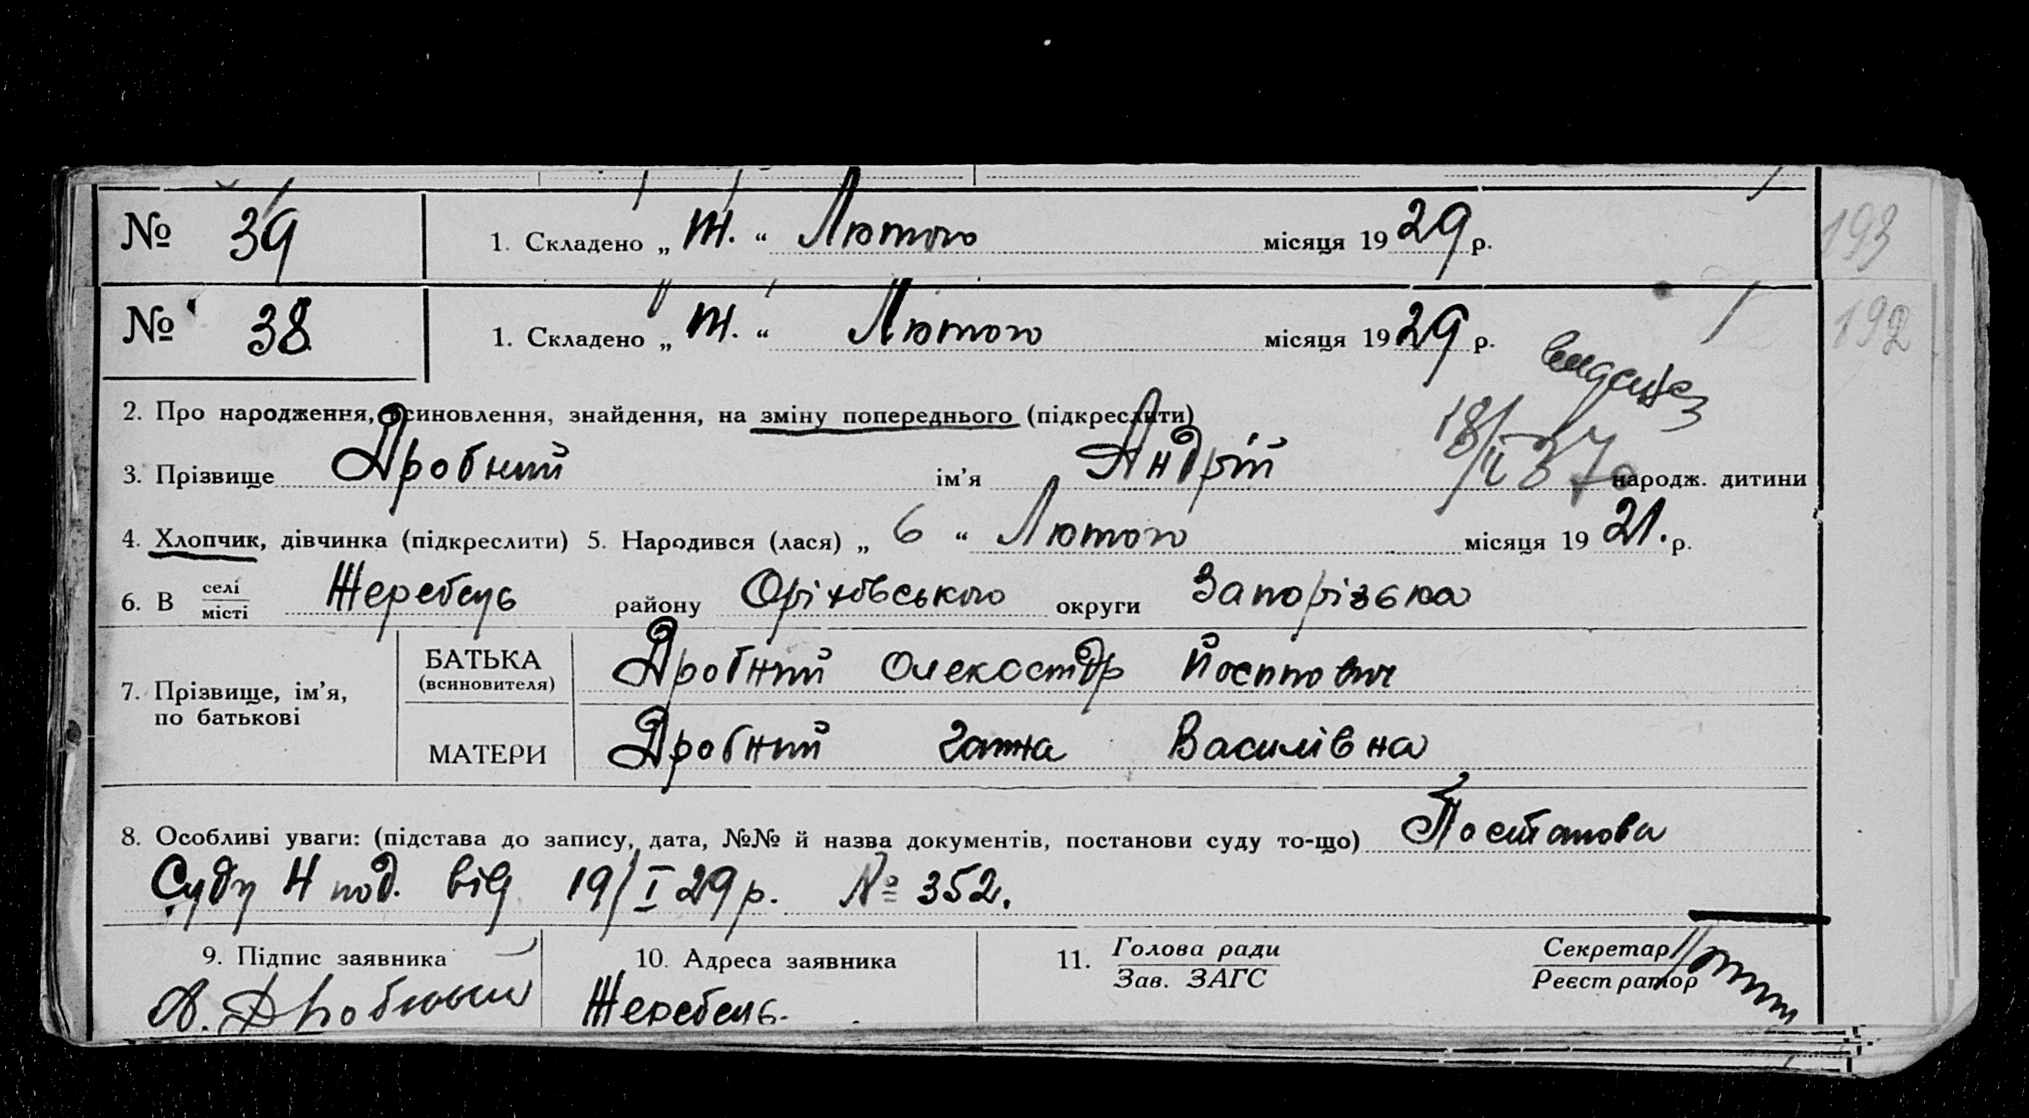 № 39 1. Складено „ “ Лютого місяця 1929 р. 193
№ 38 1. Складено „ “ Лютого місяця 1929 р. 192
2. Про народження, всиновлення, знайдення, на зміну попереднього (підкреслити)
18/II 37
3. Прізвище Дробний ім’я Андрій народж. дитини
4. Хлопчик, дівчинка (підкреслити) 5. Народився (лася) „ 6 “ Лютого місяця 1921. р.
6. В селі місті Жеребець району Оріхівського округи Запорізька
7. Прізвище, ім’я, по батькові
БАТЬКА (всиновителя) Дробний Олексстдр Йосипович
МАТЕРИ Дробний Ганна Василівна
8. Особливі уваги: (підстава до запису, дата, №№ й назва документів, постанови суду то-що) Постанова
Суду Н под. від 19/I 29 р. № 352.
9. Підпис заявника 10. Адреса заявника 11. Голова ради Зав. ЗАГС Секретар Реєстратор
А. Дробный Жеребець.